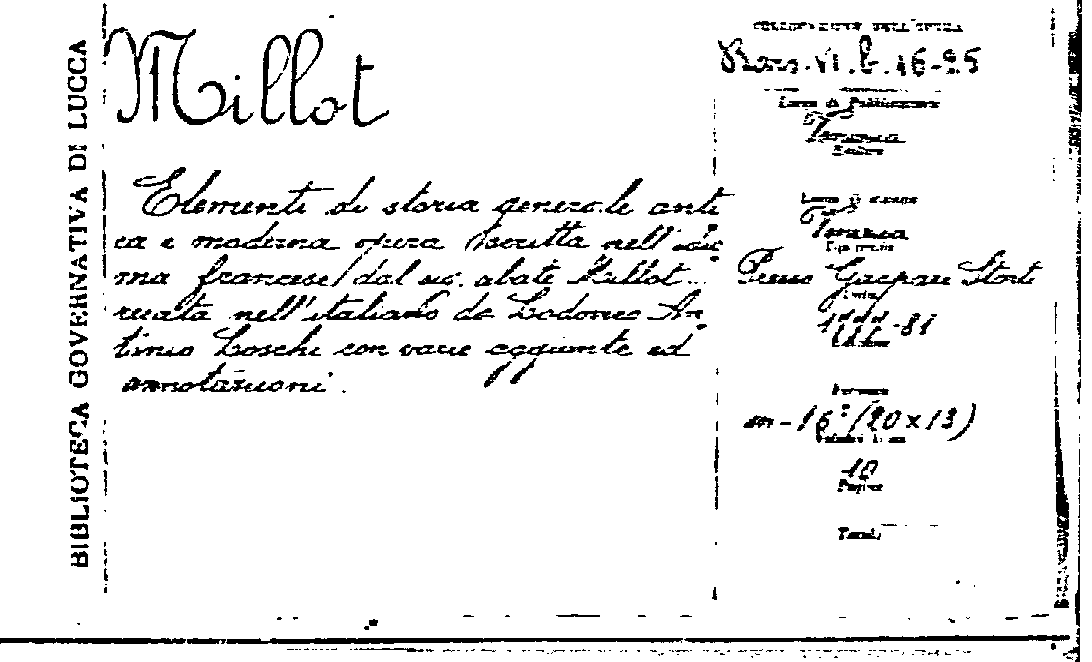 BIBLIOTECA GOVERNATIVA DI LUCCA
Millot
Elementi di storia generale anti
ca e moderna opera scritta nell'idio
ma francese dal sig. abate Millot
recata nell'italiano da Lodovico An
tonio Loschi con varie aggiunte ed
annotazioni.
COLLOCAZIONE DELL'OPERA
VI. b. 16-25
Luogo di Pubblicazione
Venezia
Editore
Luogo di stampa
Venezia
Tipografia
Presso Gaspare Storti
Data
-81
Formato
in-16° (20x13)
Volumi
10
Pagine
Tavole